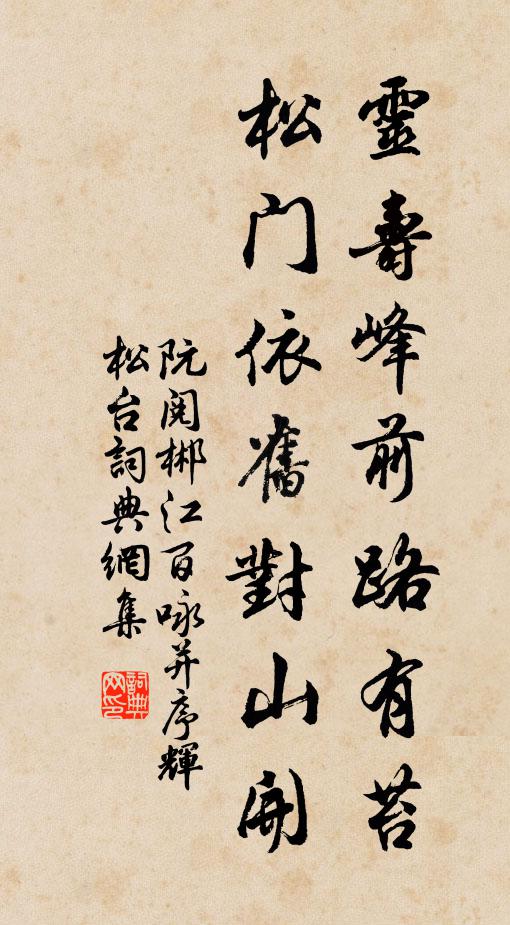 靈壽峰前路有苔
松門依舊對山開
阮閱郴江百咏并序輝
松台詞典網集
詞典網印